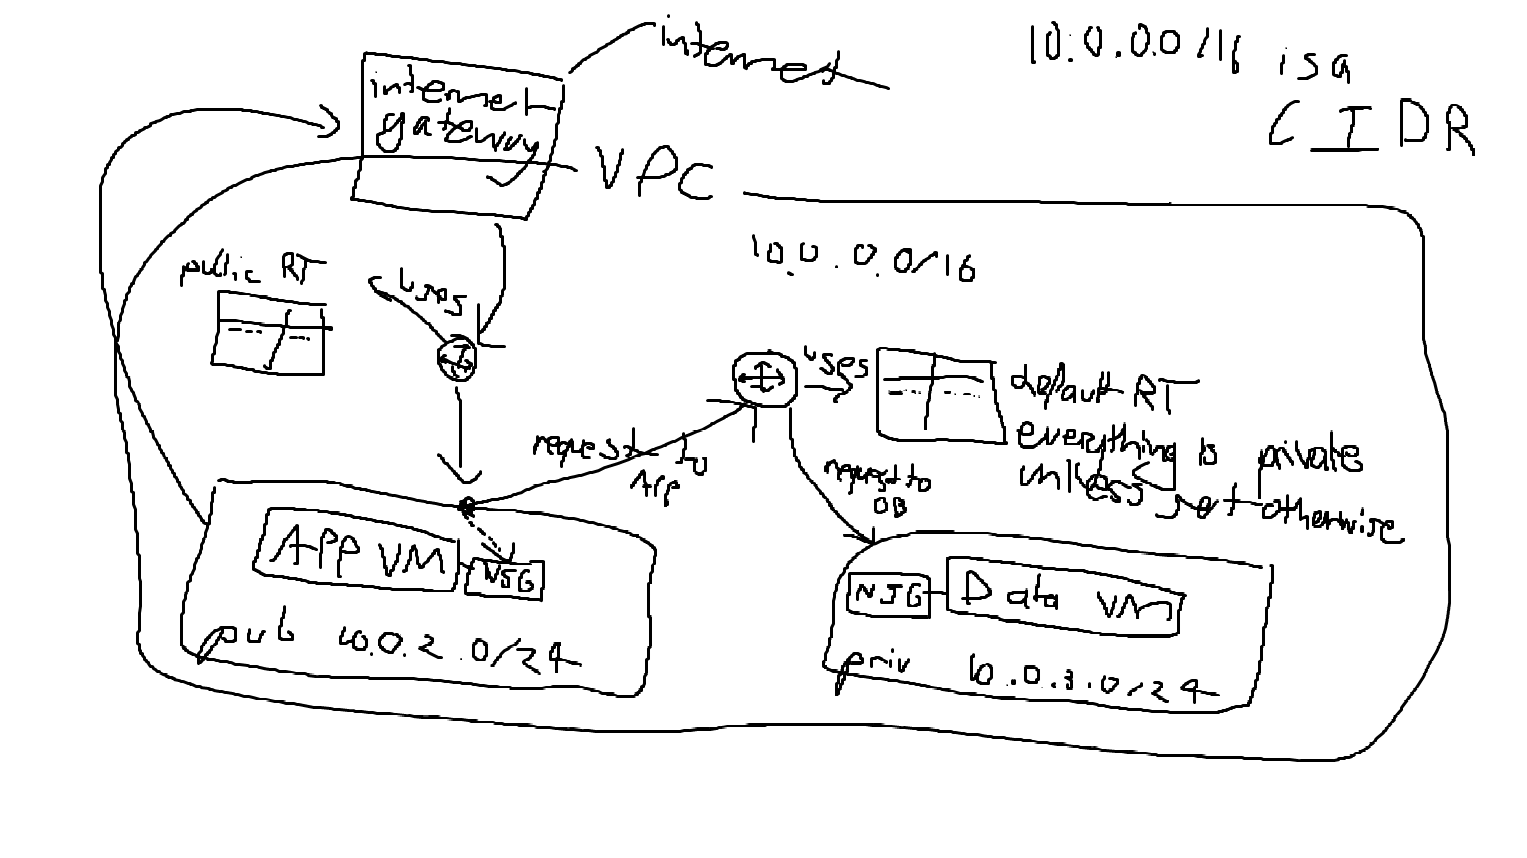 internet
10.0.0.0/16 is a
CIDR
internet
gateway
VPC
10.0.0.0/16
public RT
uses
uses
default RT
everything is private
unless set otherwise
request to
App
request to
DB
App VM
NSG
pub 10.0.2.0/24
NSG
Data VM
priv 10.0.3.0/24